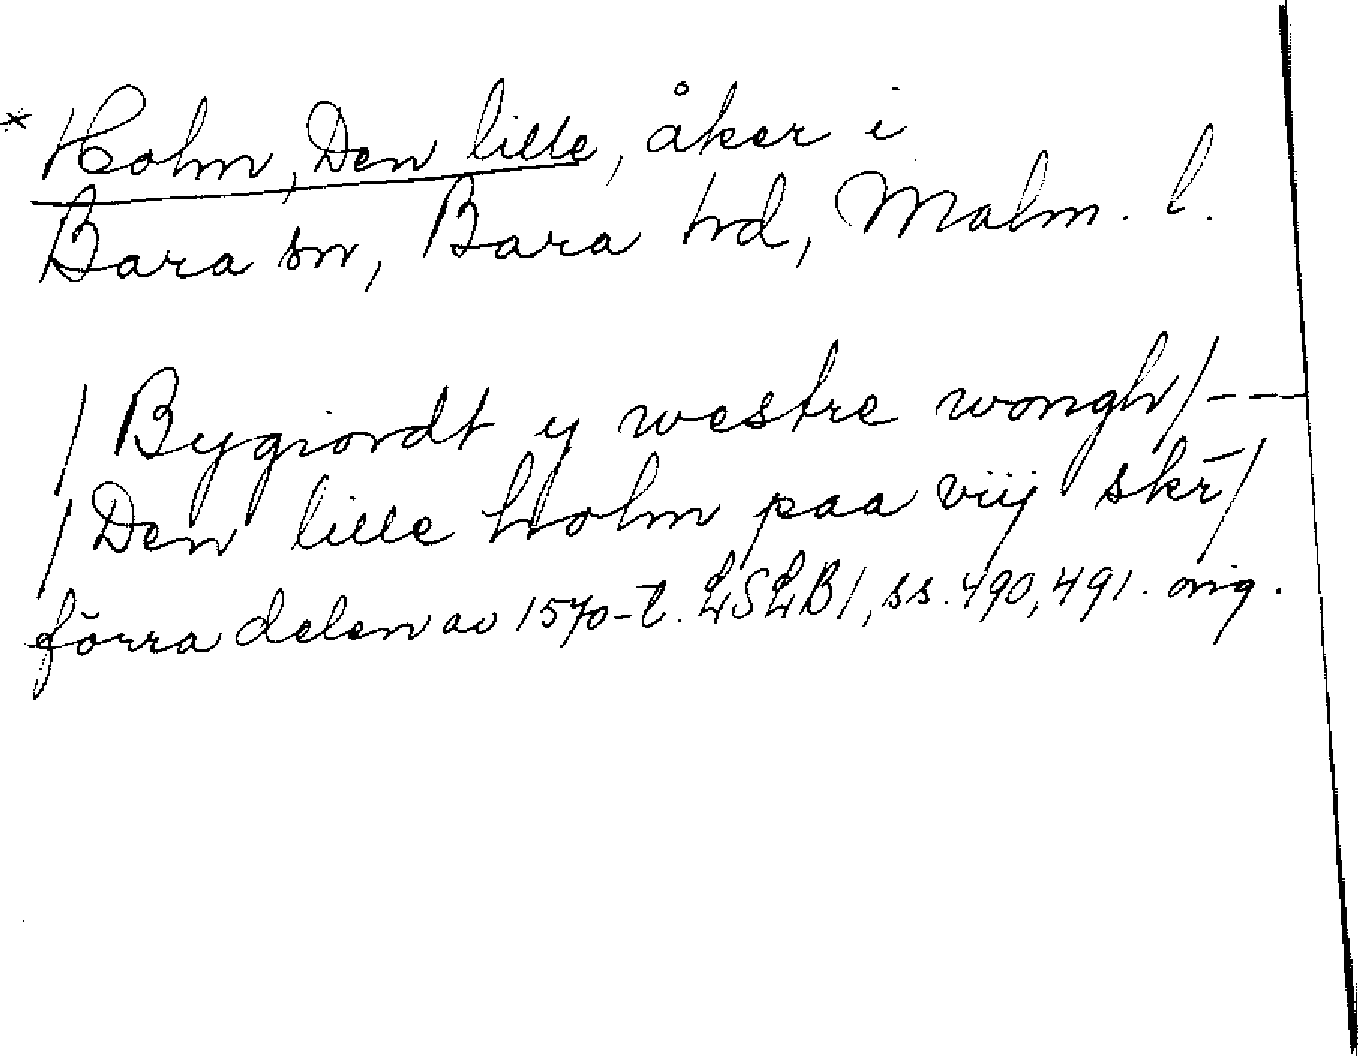 * Holm, Den lille, åker i
Bara sn, Bara hd, Malm. l.
/ Bygiordt y westre wongh/ ---
/ Den lille holm paa viij skr̄/
förra delen av 1570-t. LSLB1, ss. 490, 491. orig.